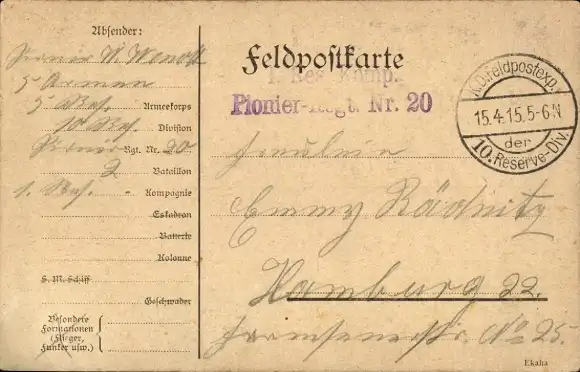 Absender:
Pionier W. Wendt
5 Armee
5 Res. Armeekorps
10 Res. Division
Pionier Rgt. Nr. 20
2 Bataillon
1. Res. - Kompagnie
Eskadron
Batterie
Kolonne
S. M. Schiff
Geschwader
Besondere
Formationen
(Flieger,
Funker usw.)
Feldpostkarte
1. Res. Komp.
Pionier-Regt. Nr. 20
K.D. Feldpostexp.
15.4.15. 5-6 N
der
10. Reserve-Div.
Fräulein
Emmy Rädnitz
Hamburg 22.
No 25.
Ekaha